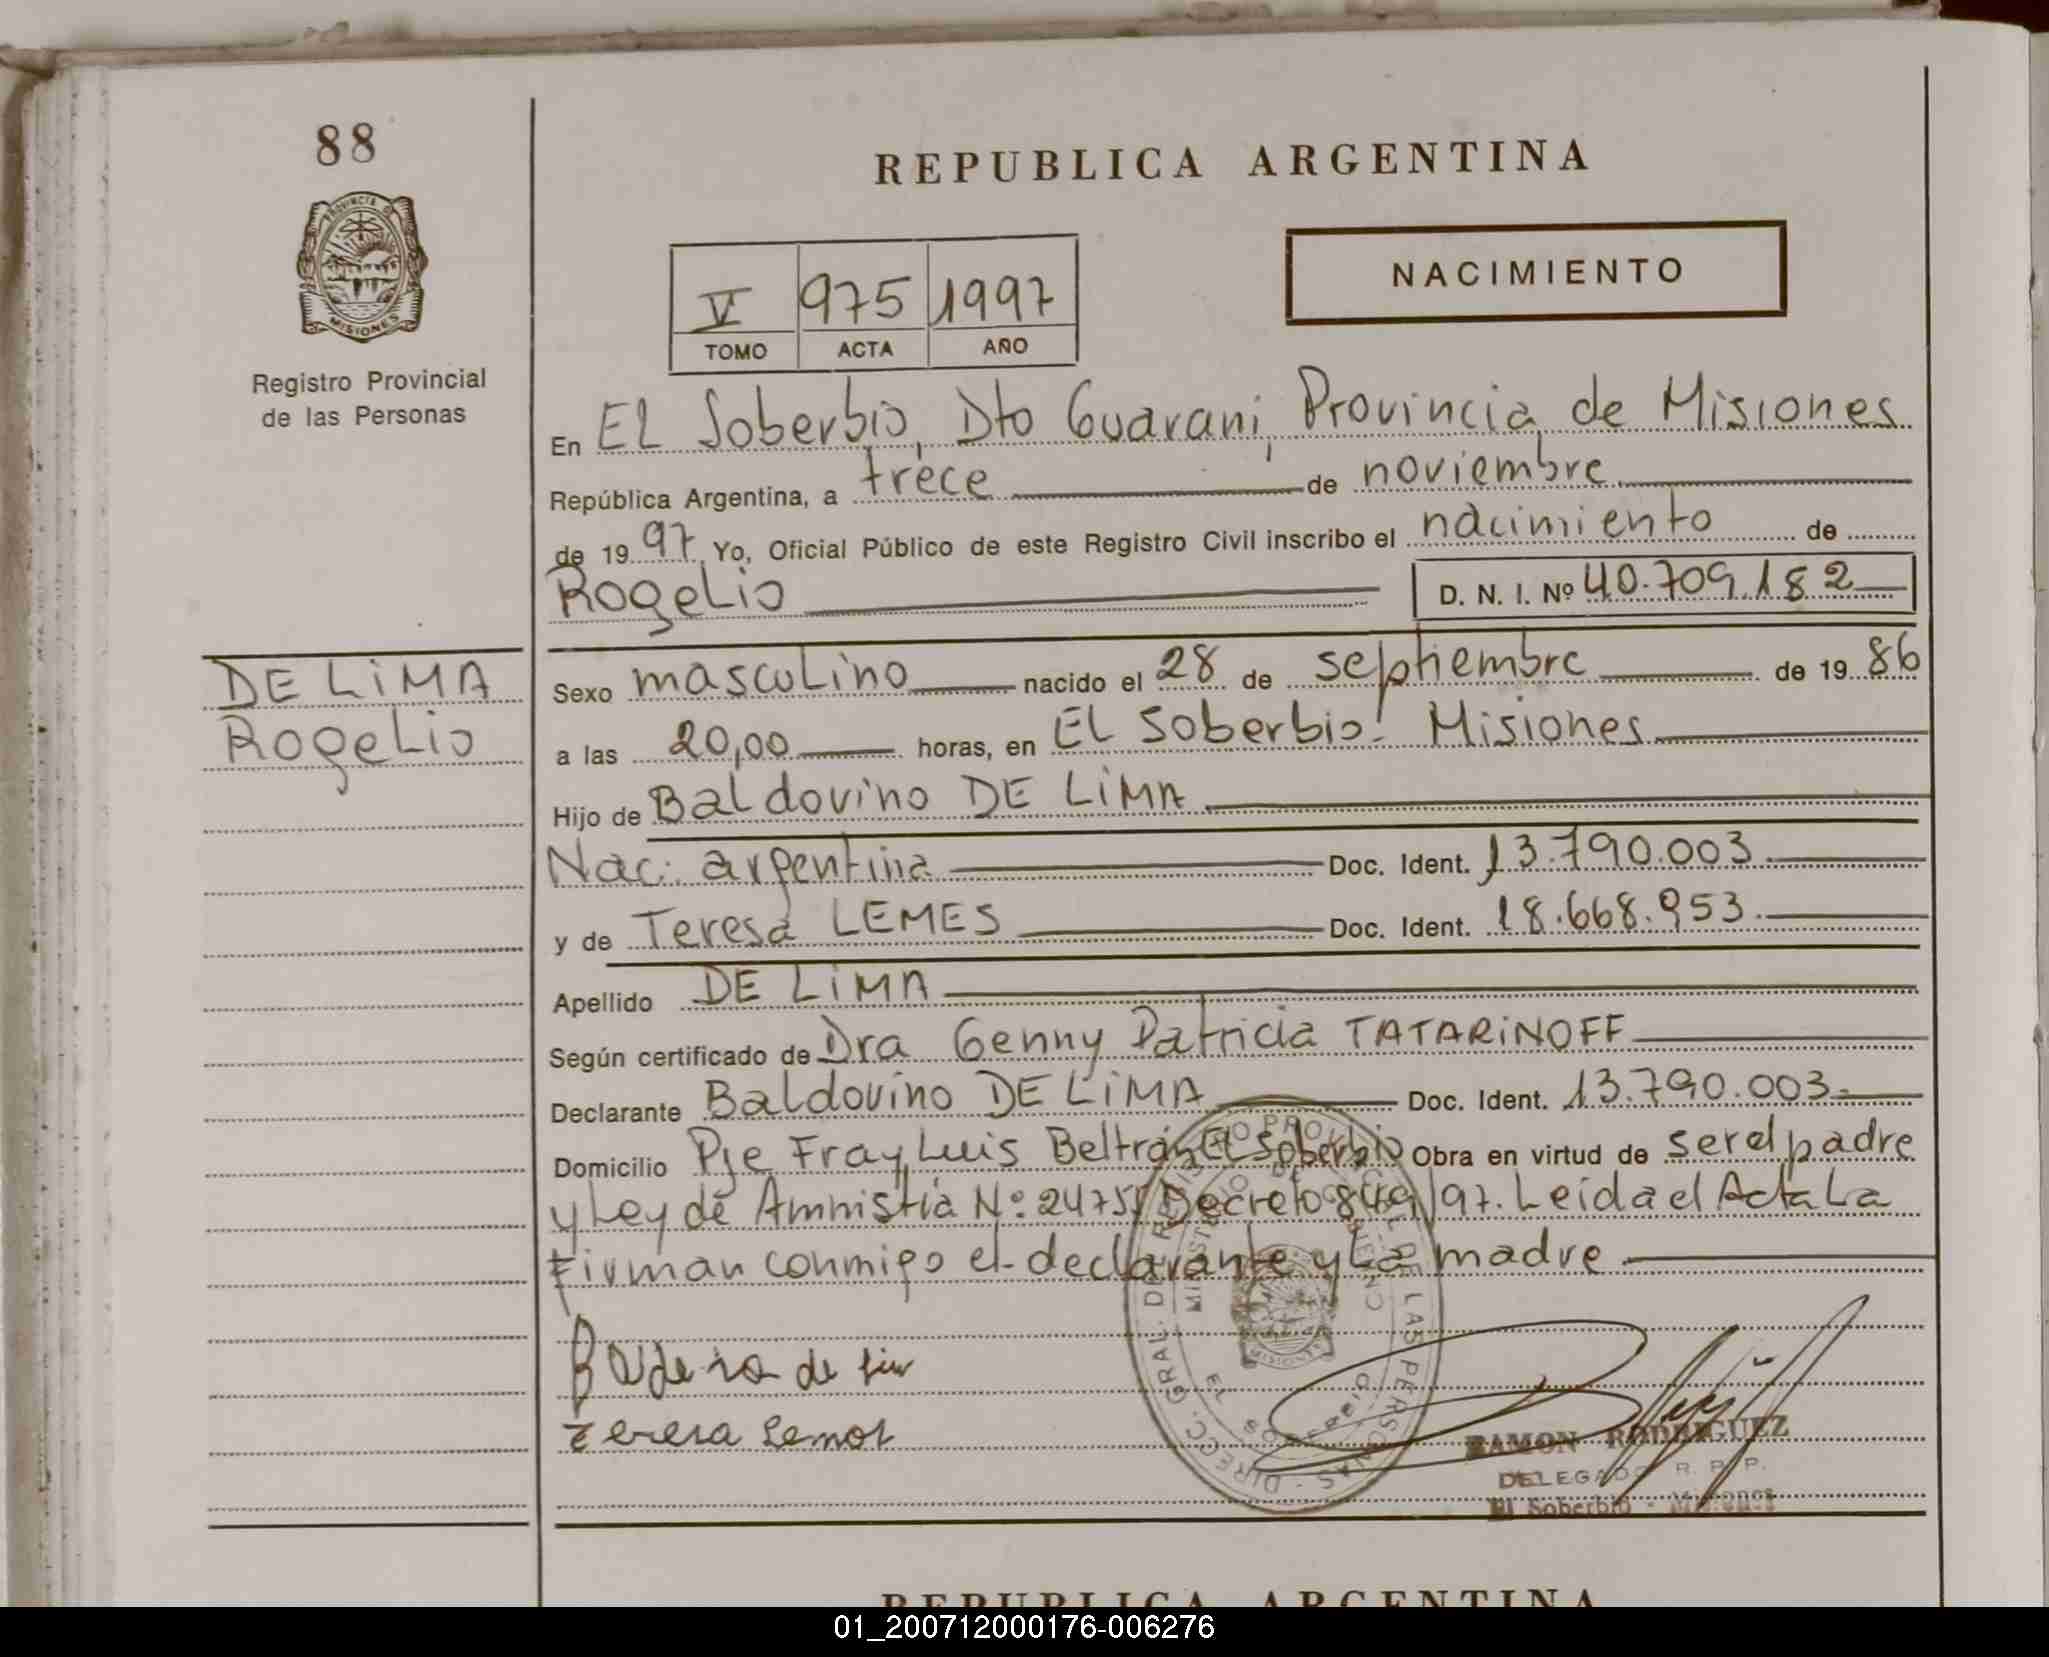 88
REPUBLICA ARGENTINA
PROVINCIA D
MISIONES
NACIMIENTO
V 975 1997
TOMO ACTA AÑO
Registro Provincial
de las Personas
En EL Soberbio, Dto Guarani, Provincia de Misiones
República Argentina, a trece de noviembre
de 19 97 Yo, Oficial Público de este Registro Civil inscribo el nacimiento de
Rogelio D. N. I. Nº 40.709.182
DE LiMA
Rogelio
Sexo masculino nacido el 28 de septiembre de 19 86
a las 20,00 horas, en EL Soberbio. Misiones
Hijo de Baldovino DE LiMA
Nac: argentina Doc. Ident. 13.790.003
y de Teresa LEMES Doc. Ident. 18.668.953.
Apellido DE LiMA
Según certificado de Dra Genny Patricia TATARiNOFF
Declarante Baldovino DE LiMA Doc. Ident. 13.790.003.
Domicilio Pje Fray Luis Beltrán El Soberbio Obra en virtud de ser el padre
y Ley de Amnistia Nº 24755 Decreto 849/97. Leida el Acta La
Firman conmigo el declarante y La madre
DIRECC. GRAL. DE REGISTRO PROVINCIAL DE LAS PERSONAS
MINISTERIO DE GOBIERNO
MISIONES
de lim
Teresa Lemos
RAMON RODRIGUEZ
DELEGADO R. P. P.
El Soberbio - Misiones
REPUBLICA ARGENTINA
01_200712000176-006276